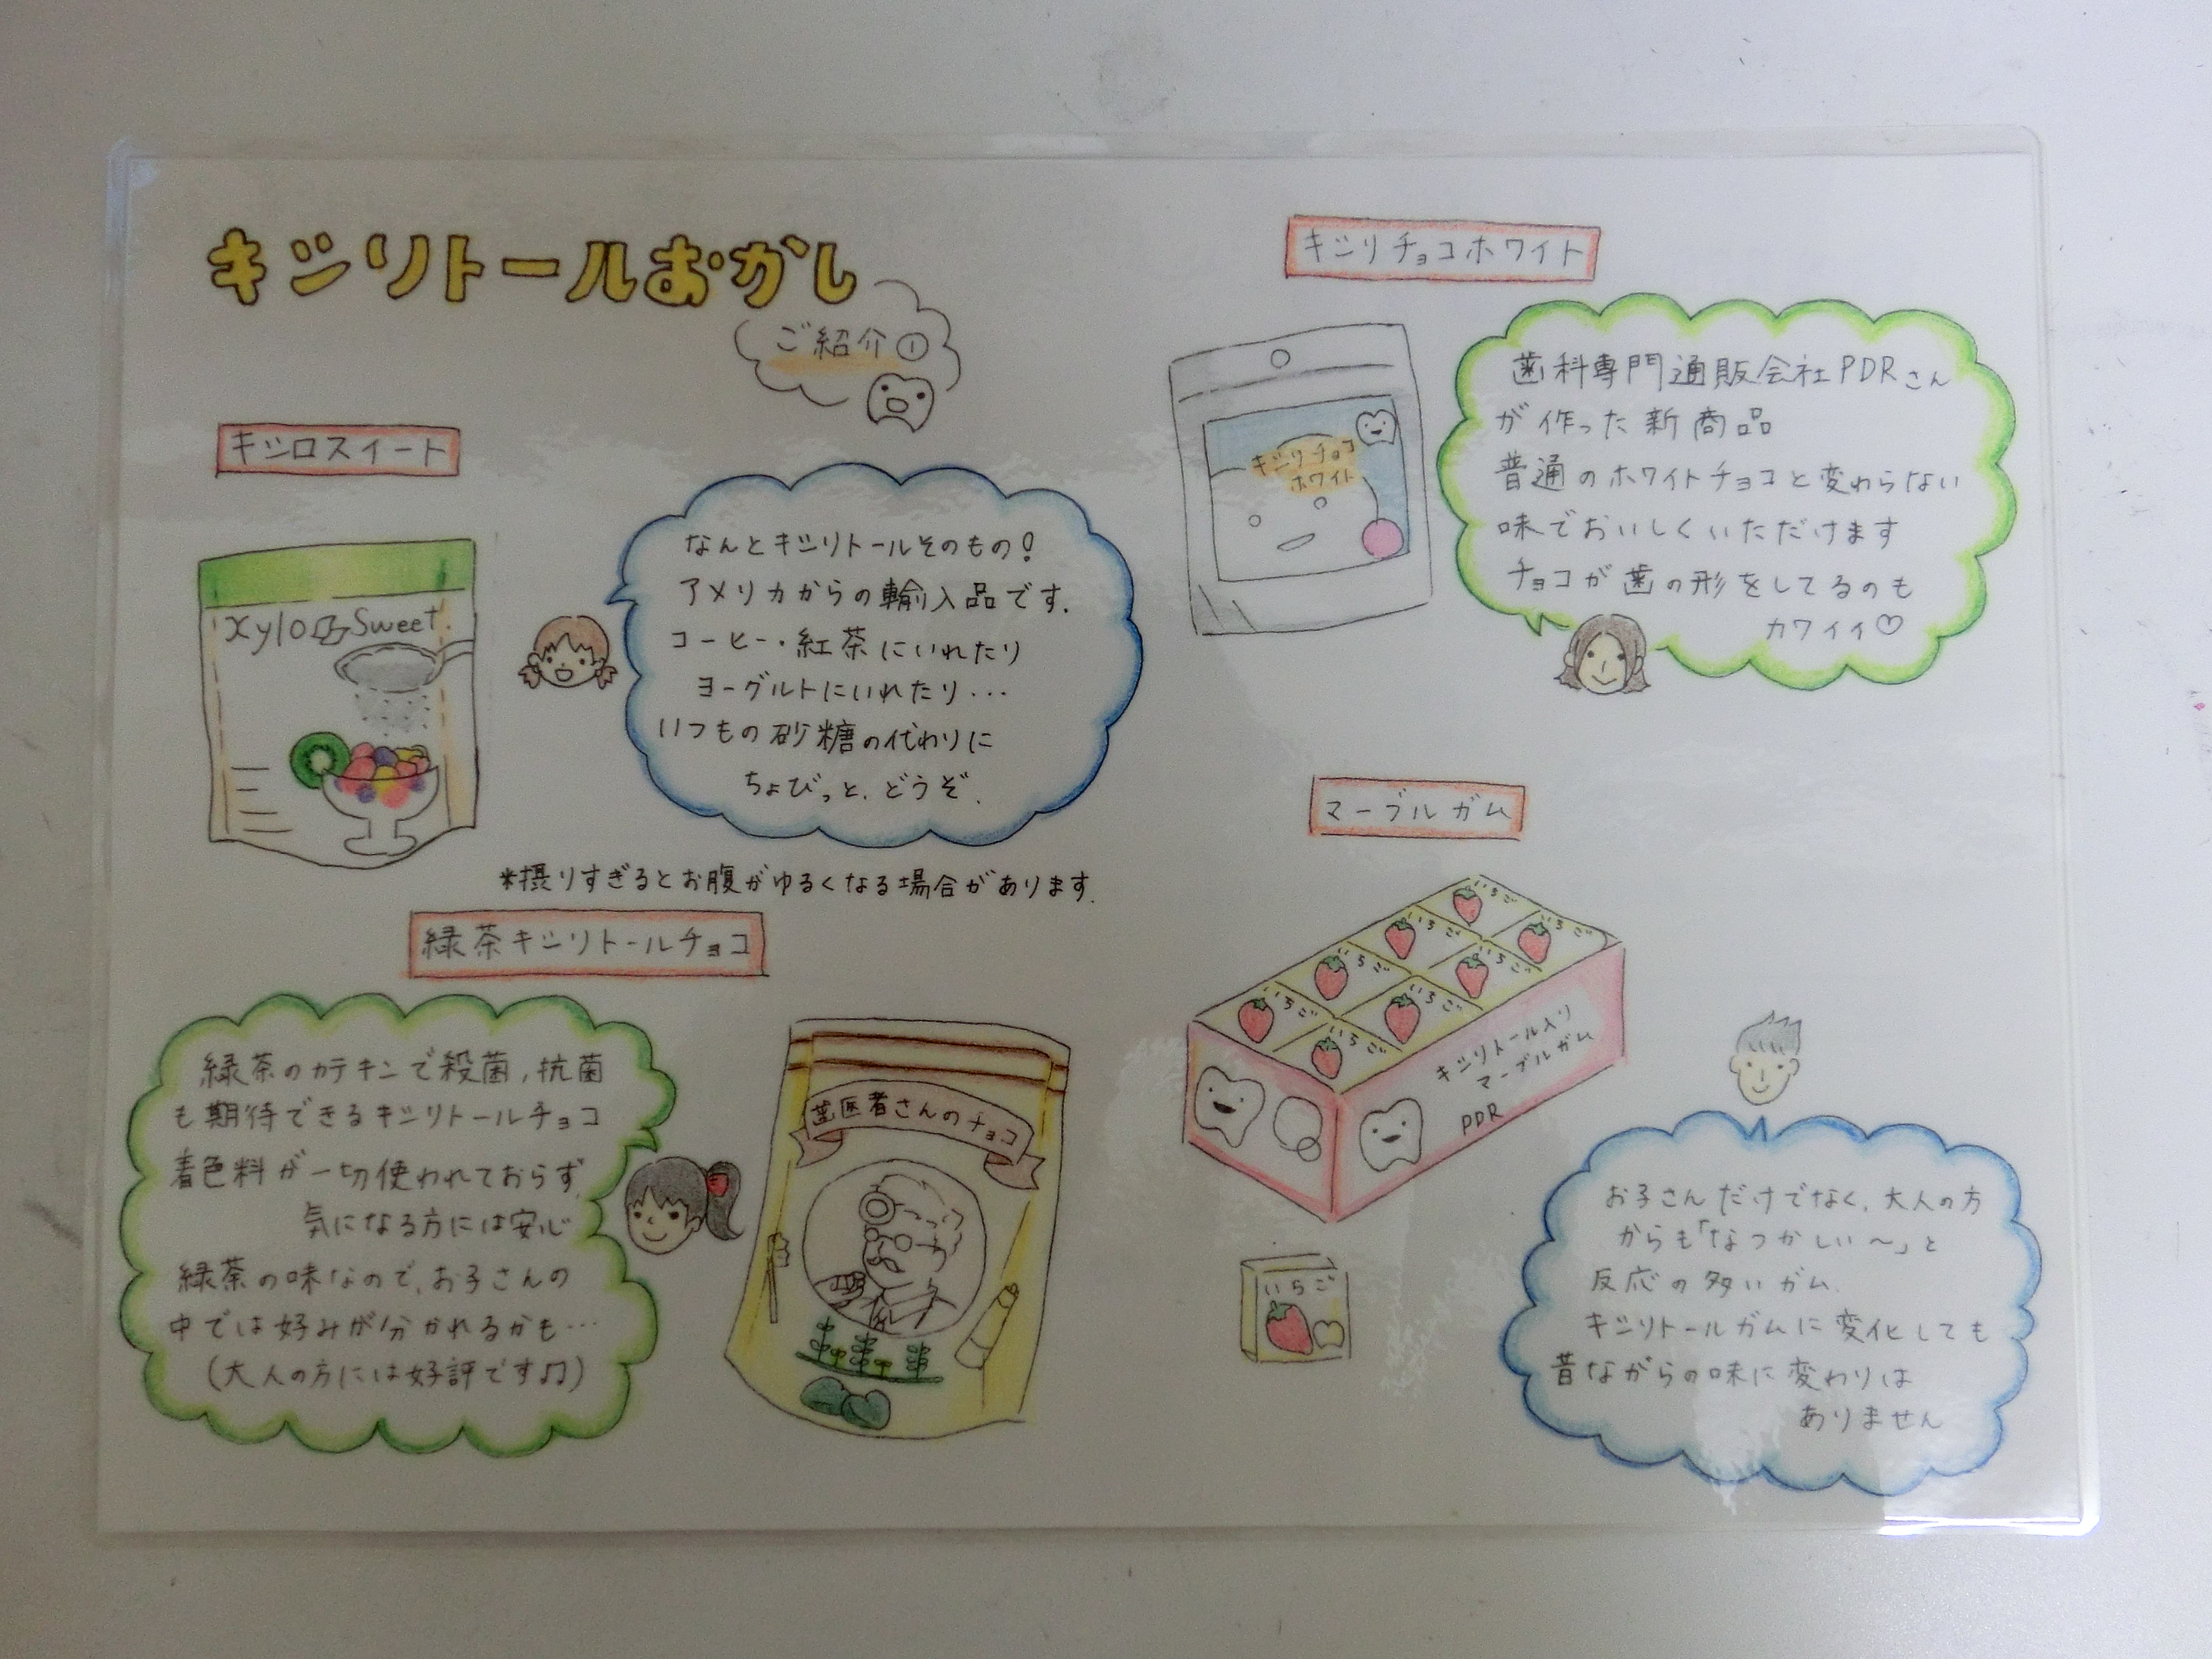 キシリトールおかし
ご紹介①
キシロスイート
xylo Sweet
なんとキシリトールそのもの!
アメリカからの輸入品です.
コーヒー・紅茶にいれたり
ヨーグルトにいれたり...
いつもの砂糖の代わりに
ちょびっと、どうぞ.
*摂りすぎるとお腹がゆるくなる場合があります.
緑茶キシリトールチョコ
緑茶のカテキンで殺菌,抗菌
も期待できるキシリトールチョコ
着色料が一切使われておらず,
気になる方には安心
緑茶の味なので、お子さんの
中では好みが分かれるかも…
(大人の方には好評です♫)
歯医者さんのチョコ
キシリチョコホワイト
キシリチョコ
ホワイト
歯科専門通販会社PDRさん
が作った新商品
普通のホワイトチョコと変わらない
味でおいしくいただけます
チョコが歯の形をしてるのも
カワイイ♡
マーブルガム
いちご
いちご
いちご
いちご
いちご
いちご
いちご
いちご
キシリトール入り
マーブルガム
PDR
いちご
お子さんだけでなく、大人の方
からも「なつかしい〜」と
反応の多いガム.
キシリトールガムに変化しても
昔ながらの味に変わりは
ありません